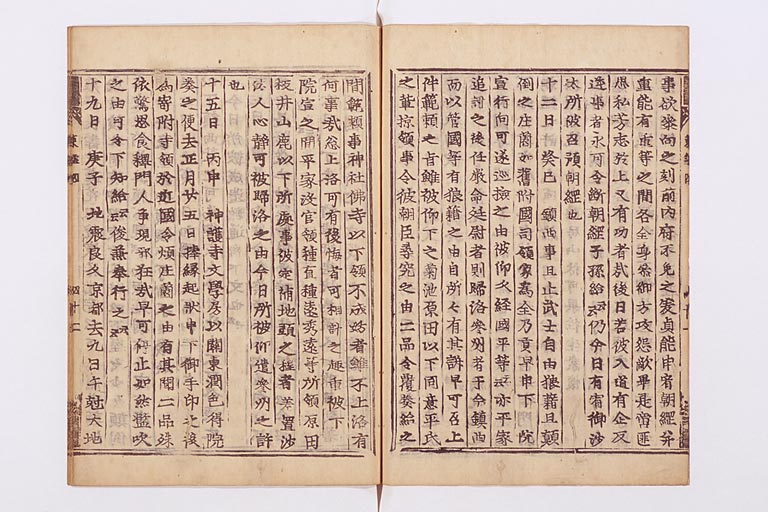 事欲梁首之刻前内府不免之爰貞能申宥朝經并
重能有重等之間各全身參御方攻怨敵畢是啻匪
思私芳志於上又有功者哉後日若彼入道有企反
逆事者永可令斷朝經子孫給云々仍今日有宥御沙
汰所被召預朝經也
十二日 癸巳 鎮西事且止武士自由狼藉且顛
倒之庄薗如舊附國司領家爲全乃貢早申下 院
宣行向可遂巡撿之由被仰久經國平等云々亦平家
追討之後任嚴命廷尉者則歸洛參州者于今鎮西
而以管國等有狼藉之由自所々有其訴早可召上
件範頼之旨雖被仰下之菊池原田以下同意平氏
之輩掠領事令彼朝臣尋究之由二品令覆奏給之
間範頼事神社佛寺以下領不成妨者雖不上洛有
何事哉忩上洛可有後悔者可相計之趣重被下
院宣之間平家没官領種直種遠秀遠等所領原田
板井山鹿以下所處事被定補地頭之程者差置沙
汰人心静可被歸洛之由今日所被仰遣參州之許
也
十五日 丙申 神護寺文學房以關東潤色得院
奏之便去正月廿五日捧縁起狀申下御手印之後
為寄附寺領於近國令煩庄薗之由有其聞二品殊
依驚思食釋門人爭現邪狂哉早可停止如然濫吹
之由可令下知給云々俊兼奉行之云々
十九日 庚子 地震良久京都去九日午尅大地